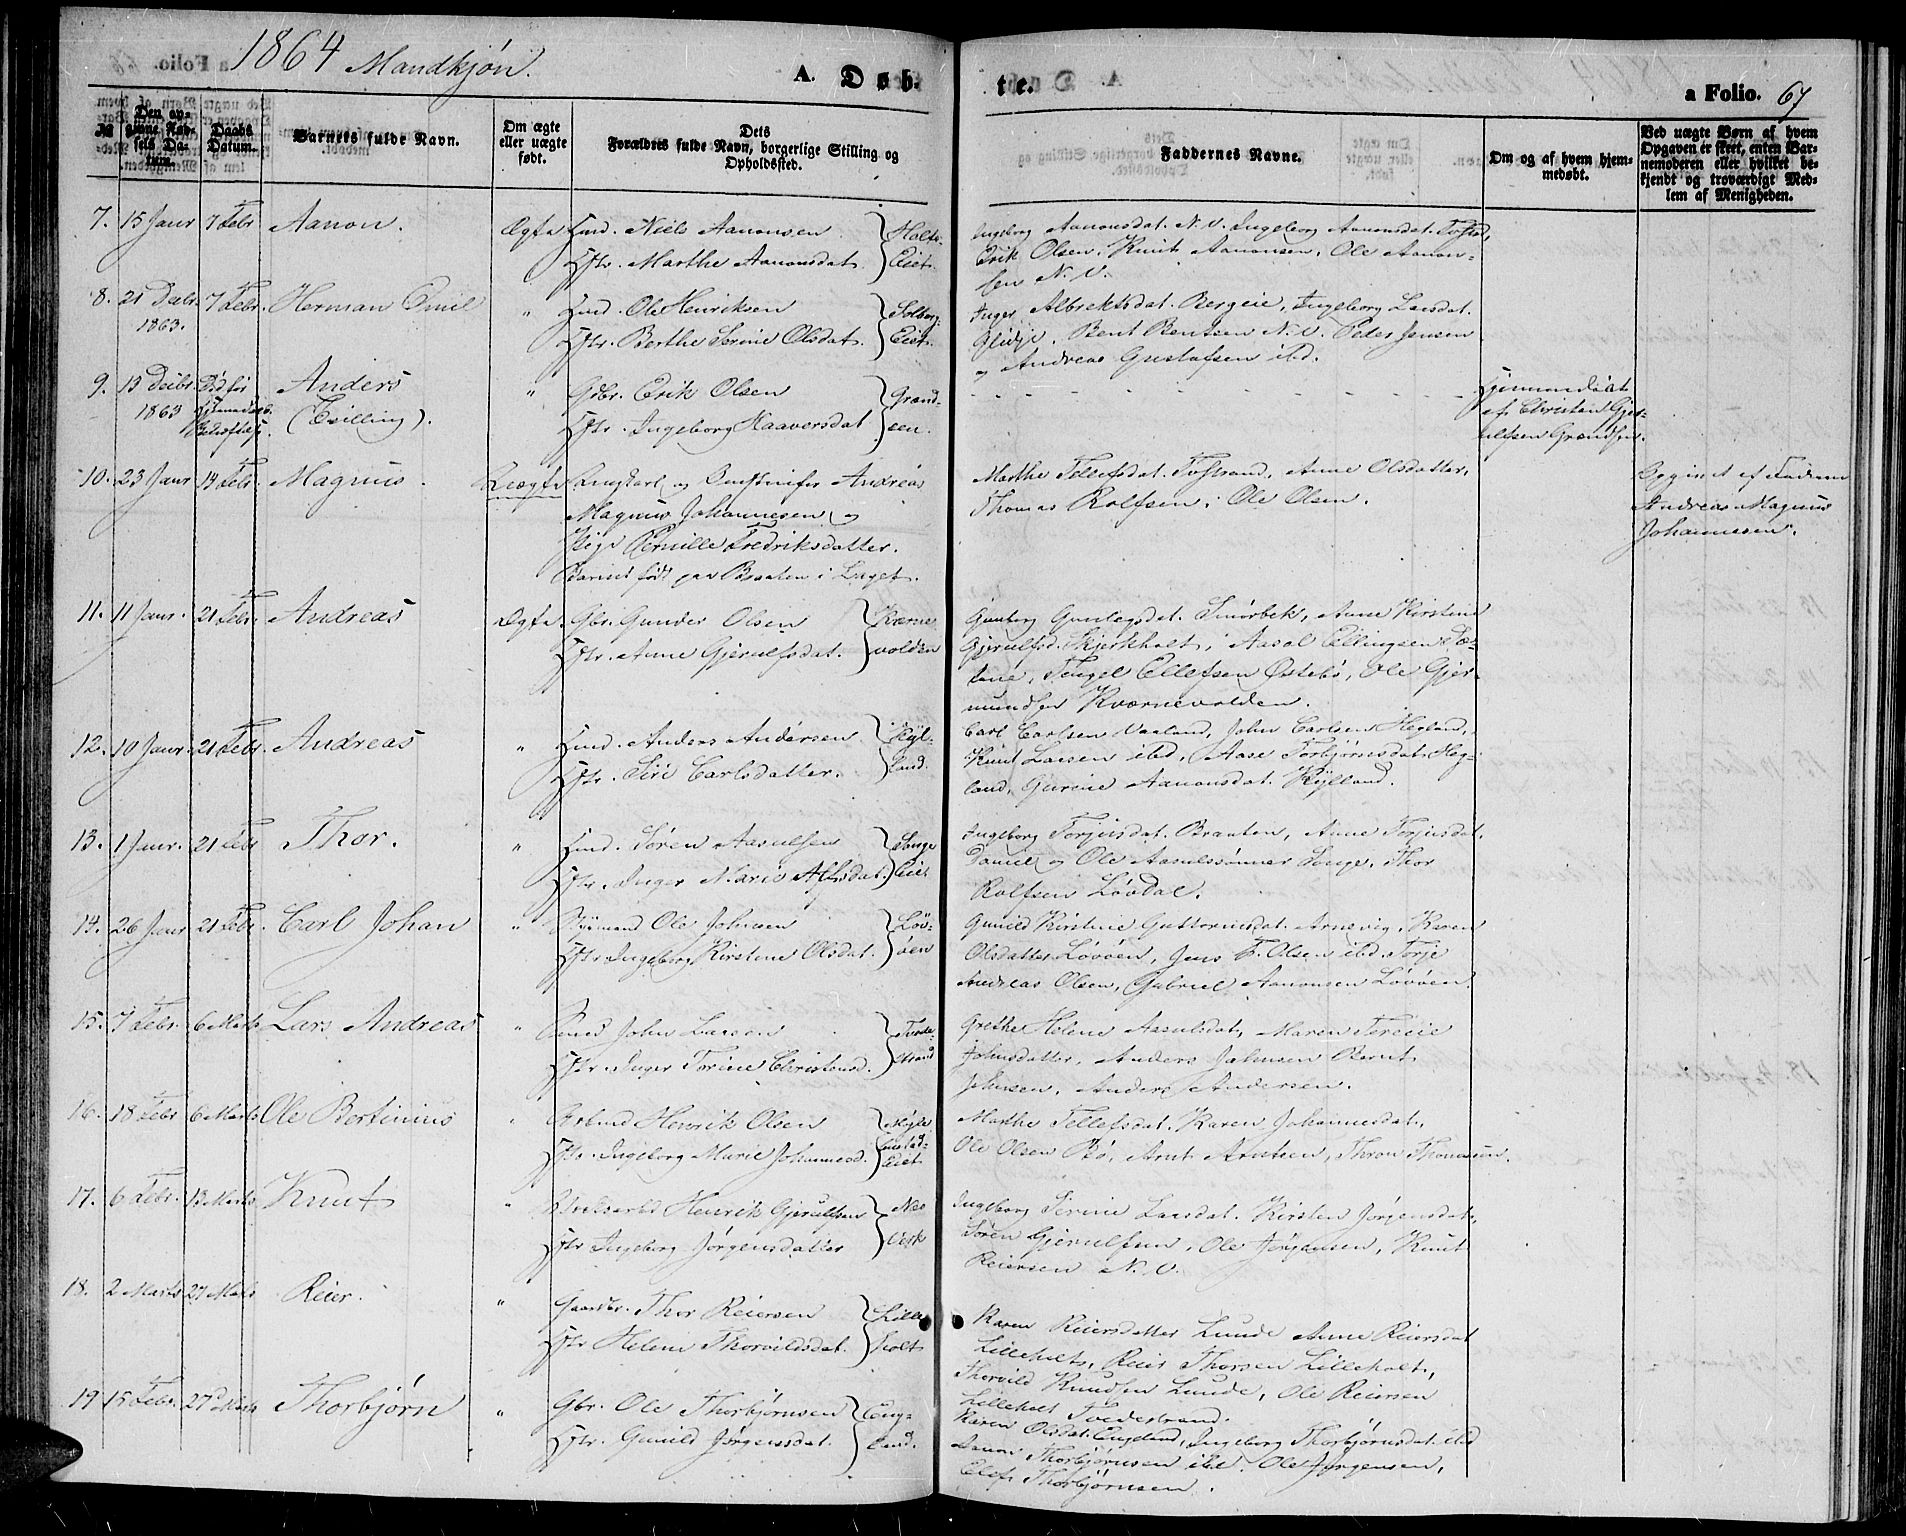 1864 Mandkjøn.
A. Døb-
te.
a Folio. 67
№
Den opgivne Fødsels Datum.
Daabs Datum.
Barnets fulde Navn.
Om ægte eller uægte født.
Dets Forældres fulde Navn, borgerlige Stilling og Opholdssted.
Faddernes Navne.
Om og af hvem hjemmedøbt.
Ved uægte Børn af hvem Opgaven er skeet, enten Barnemoderen eller hvilket bekjendt og troværdigt Medlem af Menigheden.
7. 15 Janr 7 Febr Aanon. Ægte Hmd. Niels Aanonsen } Holte-
Hstr. Marthe Aanonsdat. } Eiet.
Ingeborg Aanonsdat. N. V. Ingeborg Aanonsdat.
Erik Olsen, Knut Aanonsen, Ole Aanon-
sen N. V.
8. 21 Decbr 1863. 7 Febr. Herman Emil " Hmd. Ole Henriksen } Solberg-
Hstr. Berthe Serine Olsdat. } Eiet.
Inger Albrektsdat. Bergeie, Ingeborg Larsdat.
Bent Bentsen N. V. Peder Jensen
og Andreas Gustafsen ibd.
9. 13 Decbr. 1863 Anders " Gbr. Erik Olsen } Grænd-
(Tvilling). Hstr. Ingeborg Haaversdat } seen.
Hjemmedøbt
af Christen Gjer-
ulfsen
10. 23 Janr 14 Febr. Magnus. Uægte Ungkarl og Andreas
Magnus Johannesen og
Pige Pernille Fredriksdatter.
Barnet født paa Braaten i Laget.
Marthe Tellefsdat. Tvstrand, Anne Olsdatter,
Thomas Rolfsen, Ole Olsen.
Opgivet af Faderen
Andreas Magnus
Johannesen.
11. 11 Janr. 21 Febr. Andreas Ægte. Gbr. Gunder Olsen } Kværne-
Hstr. Anne Gjerulfsdat. } volden
Gunborg Gunlegsdat. Smørbek, Anne Kirstine
Gjerulfsd. Skjerkholt, Aasol Ellingsen Sæ-
tene, Tengel Ellefsen Østebø, Ole Gjer-
mundsen Kværnevolden.
12. 10 Janr. 21 Febr. Andreas " Hmd. Anders Andersen } Kyl-
Hstr. Siri Carlsdatter. } land.
Carl Carlsen Vaaland, John Carlsen Hegland,
Knut Larsen ibd, Aase Torbjørnsdat. Heg-
land, Gurine Aanonsdat. Kylland.
13. 1 Janr. 21 Febr Thor. " Hmd. Søren Aasulfsen } Songe
Hstr. Inger Marie Alfsdat. } Eiet
Ingeborg Torjusdat. Braaten, Anne Torjusdat.
Daniel og Ole Aasulssønner Songe, Thor
Rolfsen Løvdal.
14. 26 Janr 21 Febr. Carl Johan " Styrmand Ole Johnsen } Løv-
Hstr. Ingeborg Kirstine Olsdat. } øen
Gunild Kirstine Guttormsdat. Arnevig, Karen
Olsdatter Løvøen, Jens Fr. Olsen ibd. Torje
Andreas Olsen, Gabriel Aanonsen Løvøen.
15. 7 Febr. 6 Marts Lars Andreas " John Larsen } Tvede-
Hstr. Inger Torine Christensd. } strand
Grethe Helene Aasulsdat, Maren Teresie
Johnsdatter, Anders Johnsen Bernt
Johnsen, Anders Andersen.
16. 18 Febr 6 Marts Ole Bertinius " Arbmd Henrik Olsen
Hstr. Ingeborg Marie Johannesd. Eiet
Marthe Tellefsdat. Karen Johannesdat,
Ole Olsen Bø, Arnt Arntsen, Thron Thomassen.
17. 6 Febr. 13 Marts Knut " Henrik Gjerulfsen } Næs
Hstr Ingeborg Jørgensdatter } Verk
Ingeborg Serine Larsdat. Kirsten Jørgensdat,
Søren Gjerulfsen, Ole Jørgensen, Knut
Reiersen N. V.
18. 2 Marts 27 Marts Reier. " Gaardbr. Thor Reiersen } Lille-
Hstr Helene Thorvildsdat. } holt
Karen Reiersdatter Lunde Anne Reiersdat
Lilleholt, Reier Thorsen Lilleholt,
Thorvild Knudsen Lunde, Ole Reiersen
Lilleholt Tvedestrand.
19 15 Febr. 27 Marts Thorbjørn " Gbr. Ole Thorbjørnsen } Eng-
Hstr. Gunild Jørgensdat. } land.
Karen Olsdat. Engeland, Ingeborg Thorbjørnsdat. ibd
Aanon Thorbjørnsen ibd. Ole Jørgensen,
Elef Thorbjørnsen.